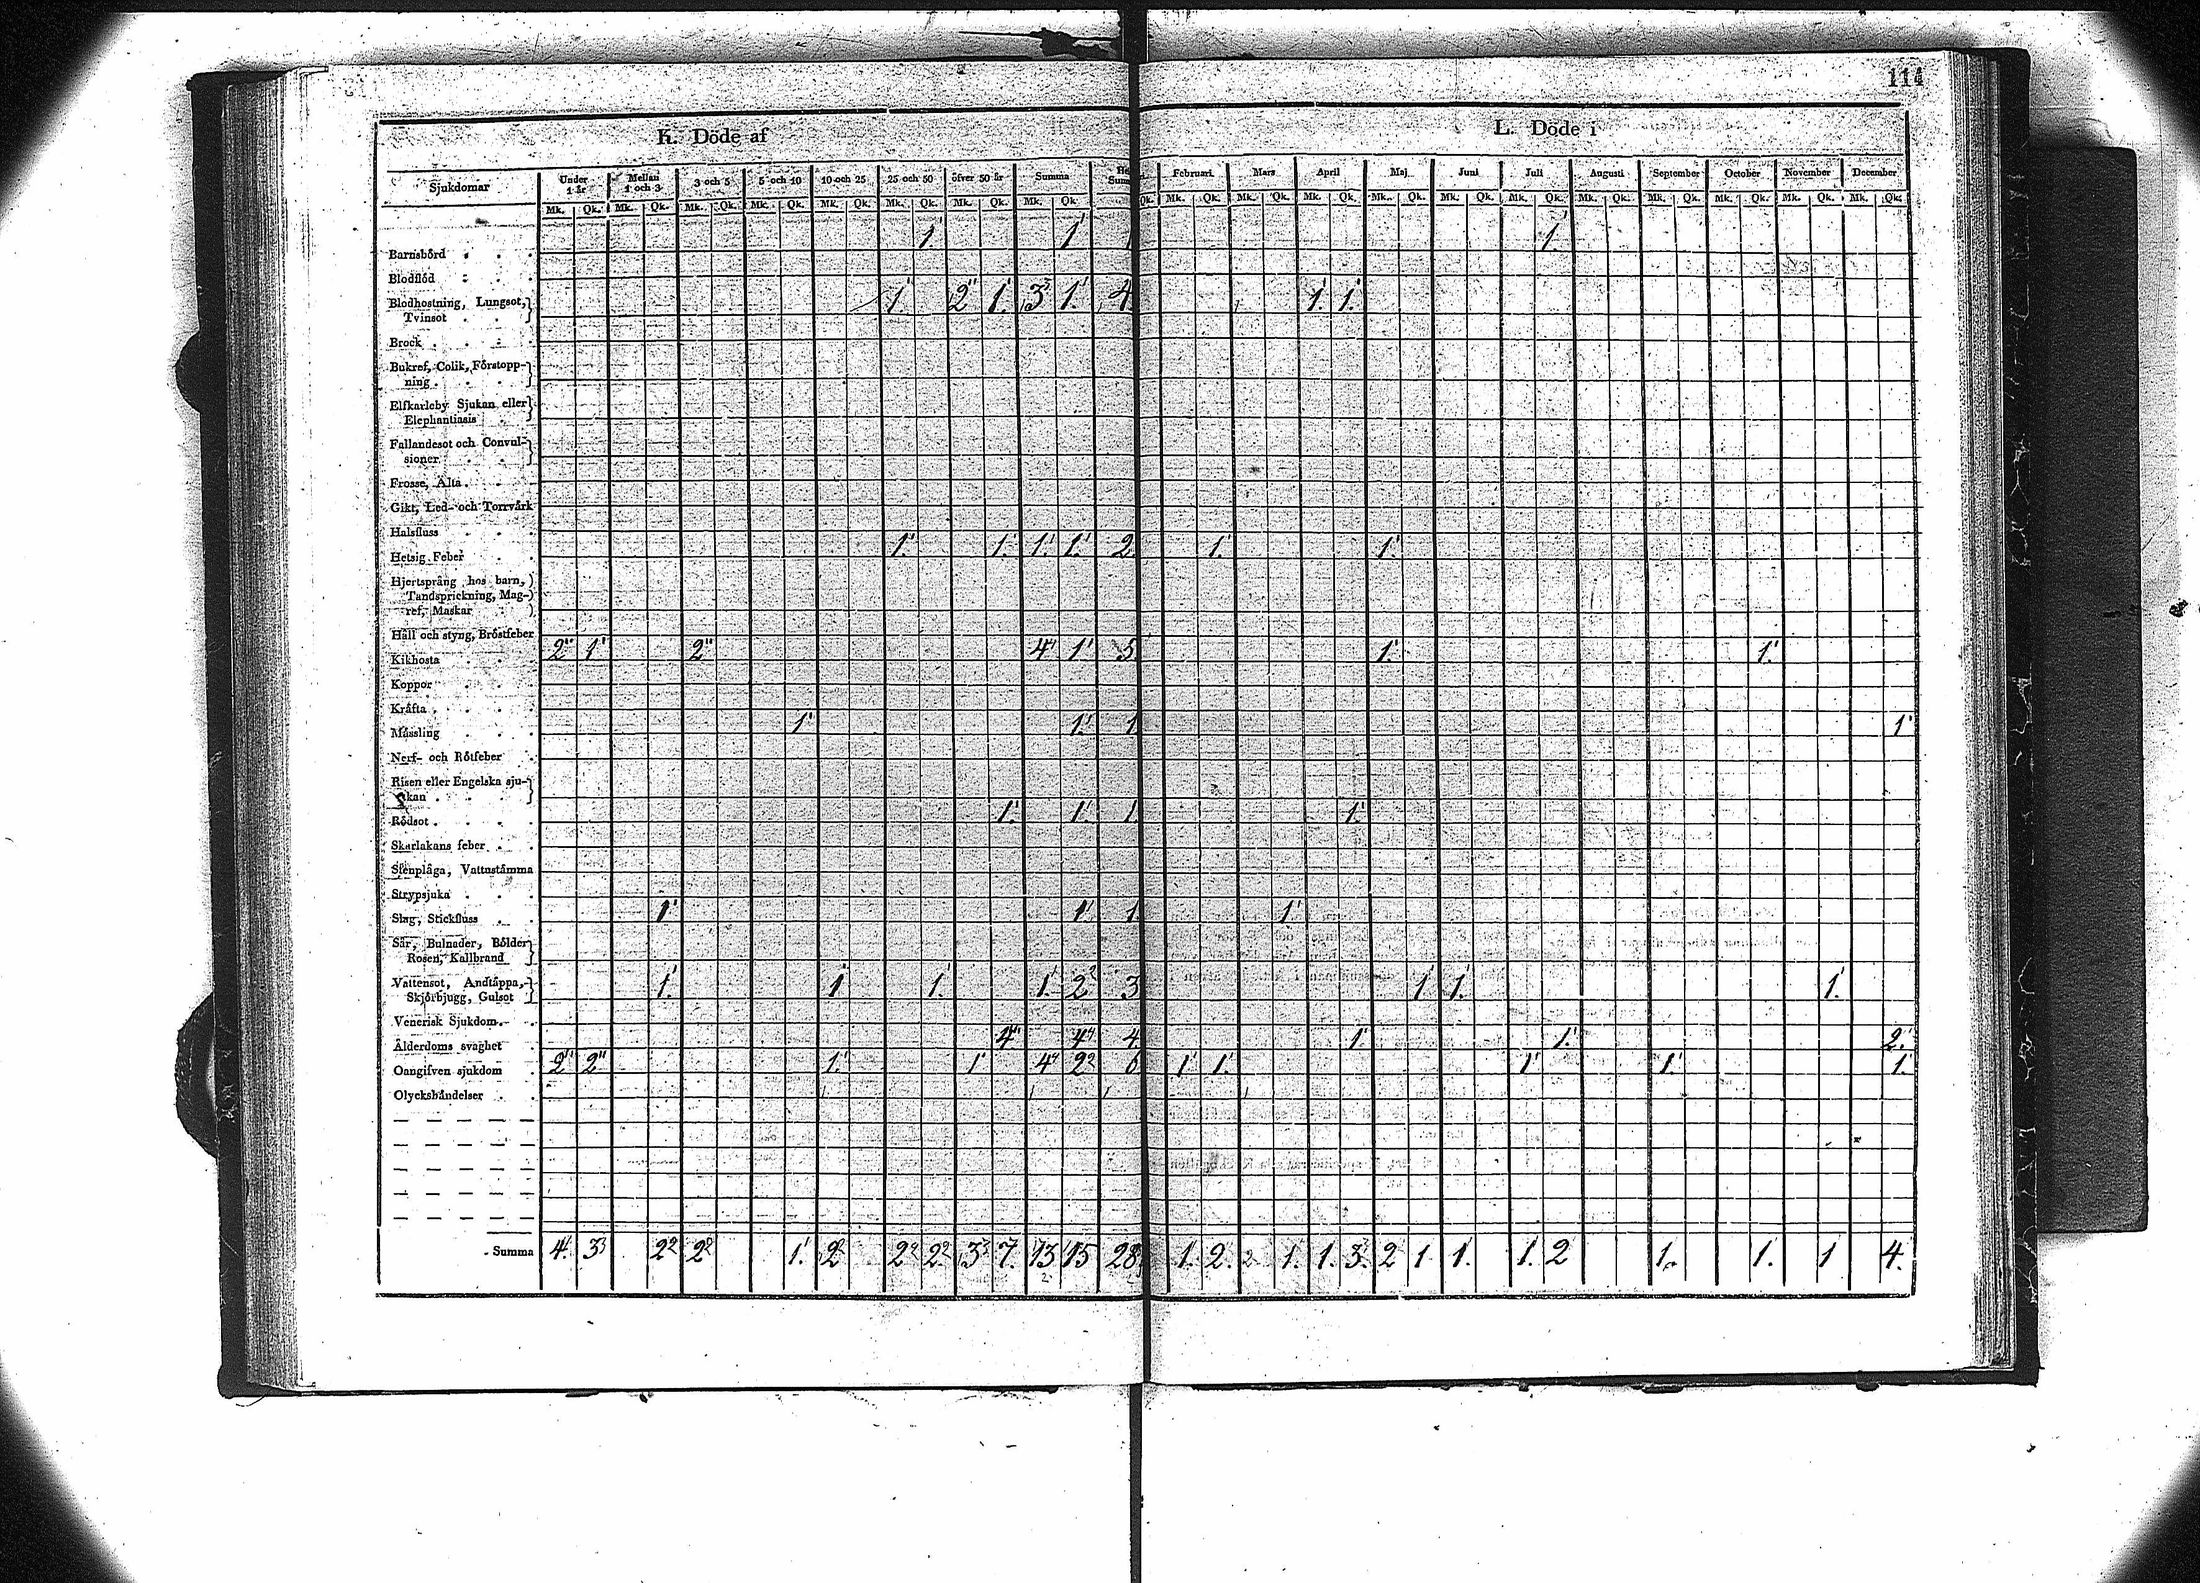 114
K. Döde af L. Döde i
Sjukdomar Under 1 år Mellan 1 och 3 3 och 5 5 och 10 10 och 25 25 och 50 öfver 50 år Summa Februari Mars April Maj Juni Juli Augusti September October November December
Mk. Qk. Mk. Qk. Mk. Qk. Mk. Qk. Mk. Qk. Mk. Qk. Mk. Qk. Mk. Qk. Qk. Mk. Qk. Mk. Qk. Mk. Qk. Mk. Qk. Mk. Qk. Mk. Qk. Mk. Qk. Mk. Qk. Mk. Qk. Mk. Qk. Mk. Qk.
Barnsbörd 1 1 1 1.
Blodflöd
Blodhostning, Lungsot,
Tvinsot 1. 2 1. 3 1. 4. 1. 1.
Brock
Bukref, Colik, Förstopp-
ning
Elfkarleby Sjukan eller
Elephantiasis
Fallandesot och Convul-
sioner
Frosse, Älta
Gikt, Led- och Torrvärk
Halsfluss
Hetsig Feber 1. 1. 1. 1. 2. 1. 1.
Hjertsprång hos barn,
Tandsprickning, Mag-
ref, Maskar
Håll och styng, Bröstfeber
Kikhosta 2 1 2 4 1. 5. 1. 1.
Koppor
Kräfta
Mässling 1 1. 1. 1
Nerf- och Rötfeber
Risen eller Engelska sju-
kan
Rödsot 1. 1. 1. 1.
Skarlakans feber
Stenplåga, Vattustämma
Strypsjuka
Slag, Stickfluss 1 1 1. 1
Sår, Bulnader, Bölder
Rosen, Kallbrand
Vattensot, Andtäppa,
Skjörbjugg, Gulsot 1. 1 1. 1. 2 3 1 1. 1.
Venerisk Sjukdom
Ålderdoms svaghet 4 4 4. 1. 1. 2.
Oangifven sjukdom 2 2 1. 1 4 2 6 1 1. 1 1. 1.
Olyckshändelser
Summa 4. 3 2 2 1. 2 2 2. 3 7. 13 15 28. 1. 2. 2. 1. 1. 3. 2 1. 1. 1. 2 1. 1. 1 4.